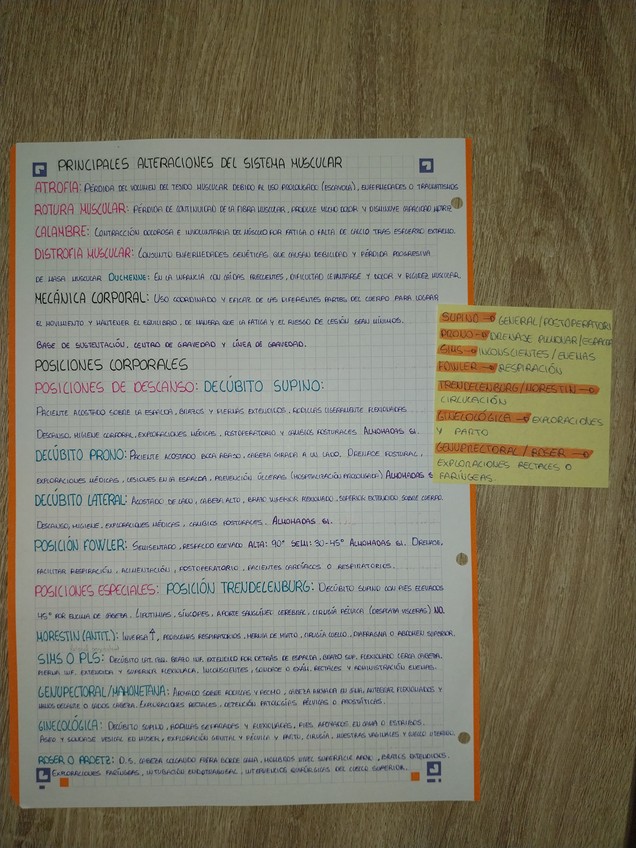 PRINCIPALES ALTERACIONES DEL SISTEMA MUSCULAR
ATROFIA: PÉRDIDA DEL VOLUMEN DEL TEJIDO MUSCULAR DEBIDO AL USO PROLONGADO (ESCAYOLA), ENFERMEDADES O TRAUMATISMOS
ROTURA MUSCULAR: PÉRDIDA DE CONTINUIDAD DE LA FIBRA MUSCULAR, PRODUCE MUCHO DOLOR Y DISMINUYE CAPACIDAD MOTRIZ
CALAMBRE: CONTRACCIÓN DOLOROSA E INVOLUNTARIA DEL MÚSCULO POR FATIGA O FALTA DE CALCIO TRAS ESFUERZO EXTREMO.
DISTROFIA MUSCULAR: CONJUNTO ENFERMEDADES GENÉTICAS QUE CAUSAN DEBILIDAD Y PÉRDIDA PROGRESIVA
DE MASA MUSCULAR DUCHENNE: EN LA INFANCIA CON CAÍDAS FRECUENTES, DIFICULTAD LEVANTARSE Y DOLOR Y RIGIDEZ MUSCULAR.
MECÁNICA CORPORAL: USO COORDINADO Y EFICAZ DE LAS DIFERENTES PARTES DEL CUERPO PARA LOGRAR
EL MOVIMIENTO Y MANTENER EL EQUILIBRIO, DE MANERA QUE LA FATIGA Y EL RIESGO DE LESIÓN SEAN MÍNIMOS.
BASE DE SUSTENTACIÓN, CENTRO DE GRAVEDAD Y LÍNEA DE GRAVEDAD.
POSICIONES CORPORALES
POSICIONES DE DESCANSO: DECÚBITO SUPINO:
PACIENTE ACOSTADO SOBRE LA ESPALDA, BRAZOS Y PIERNAS EXTENDIDOS, RODILLAS LIGERAMENTE FLEXIONADAS
DESCANSO, HIGIENE CORPORAL, EXPLORACIONES MÉDICAS, POSTOPERATORIO Y CAMBIOS POSTURALES. ALMOHADAS SI.
DECÚBITO PRONO: PACIENTE ACOSTADO BOCA ABAJO, CABEZA GIRADA A UN LADO. DRENAJE POSTURAL,
EXPLORACIONES MÉDICAS, LESIONES EN LA ESPALDA, PREVENCIÓN ÚLCERAS (HOSPITALIZACIÓN PROLONGADA) ALMOHADAS
DECÚBITO LATERAL: ACOSTADO DE LADO, CABEZA ALTO, BRAZO SUPERIOR FLEXIONADO, SUPERIOR EXTENDIDO SOBRE CUERPO.
DESCANSO, HIGIENE, EXPLORACIONES MÉDICAS, CAMBIOS POSTURALES. ALMOHADAS SI.
POSICIÓN FOWLER: SEMISENTADO, RESPALDO ELEVADO ALTA: 90° SEMI: 30-45° ALMOHADAS SI. DRENAJE,
FACILITAR RESPIRACIÓN, ALIMENTACIÓN, POSTOPERATORIO, PACIENTES CARDÍACOS O RESPIRATORIOS.
POSICIONES ESPECIALES: POSICIÓN TRENDELENBURG: DECÚBITO SUPINO CON PIES ELEVADOS
45° POR ENCIMA DE CABEZA. LIPOTIMIAS, SÍNCOPES, APORTE SANGUÍNEO CEREBRAL, CIRUGÍA PÉLVICA (DESPLAZA VÍSCERAS) NO.
MORESTIN (ANTIT.): INVERSA, PROBLEMAS RESPIRATORIOS, HERNIA DE HIATO, CIRUGÍA CUELLO, DIAFRAGMA O ABDOMEN SUPERIOR.
SIMS O PLS: DECÚBITO LAT. IZQ. BRAZO INF. EXTENDIDO POR DETRÁS DE ESPALDA, BRAZO SUP. FLEXIONADO CERCA CABEZA.
PIERNA INF. EXTENDIDA Y SUPERIOR FLEXIONADA. INCONSCIENTES, SONDAJE O EXÁM. RECTALES Y ADMINISTRACIÓN ENEMAS.
GENUPECTORAL/MAHOMETANA: APOYADO SOBRE RODILLAS Y PECHO, CABEZA APOYADA EN CAMA, ANTEBRAZ FLEXIONADOS Y
MANOS DELANTE O LADOS CABEZA. EXPLORACIONES RECTALES, DETECCIÓN PATOLOGÍAS PÉLVICAS O PROSTÁTICAS.
GINECOLÓGICA: DECÚBITO SUPINO, RODILLAS SEPARADAS Y FLEXIONADAS, PIES APOYADOS EN CAMA O ESTRIBOS.
ASEO Y SONDAJE VESICAL EN MUJER, EXPLORACIÓN GENITAL Y PÉLVICA Y PARTO, CIRUGÍA, MUESTRAS VAGINALES Y CUELLO UTERINO.
ROSER O PROETZ: D.S. CABEZA COLGANDO FUERA BORDE CAMA, HOMBROS NIVEL SUPERFICIE APOYO, BRAZOS EXTENDIDOS.
EXPLORACIONES FARÍNGEAS, INTUBACIÓN ENDOTRAQUEAL, INTERVENCIONES QUIRÚRGICAS DEL CUELLO SUPERIOR.
SUPINO → GENERAL/POSTOPERATORI
PRONO → DRENAJE PULMONAR/ESPALDA
SIMS → INCONSCIENTES/ENEMAS
FOWLER → RESPIRACIÓN
TRENDELENBURG/MORESTIN →
CIRCULACIÓN
GINECOLÓGICA → EXPLORACIONES
Y PARTO
GENUPECTORAL/ROSER →
EXPLORACIONES RECTALES O
FARÍNGEAS.